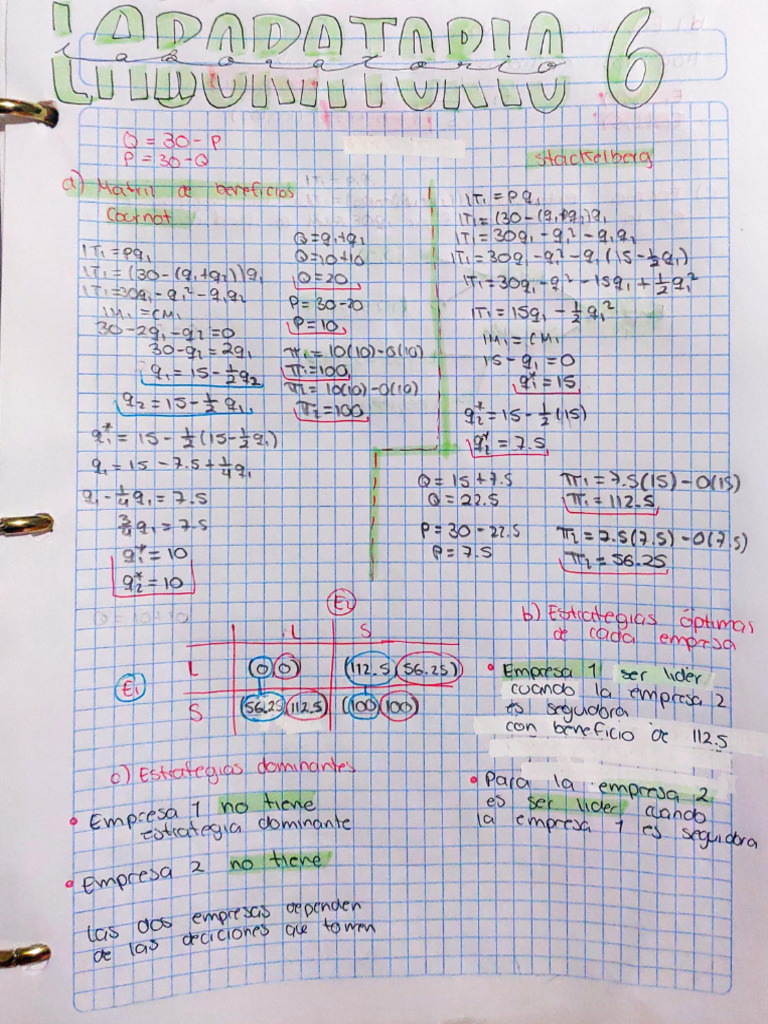 LABORATORIO 6
laboratorio
Q = 30 - P
P = 30 - Q
a) Matriz de beneficios
Cournot
Π₁ = Pq₁
Π₁ = (30 - (q₁ + q₂)) q₁
Π₁ = 30q₁ - q₁² - q₁q₂
IM₁ = CM₁
30 - 2q₁ - q₂ = 0
30 - q₂ = 2q₁
q₁ = 15 - ½q₂
q₂ = 15 - ½q₁
q₁* = 15 - ½(15 - ½q₁)
q₁ = 15 - 7.5 + ¼q₁
q₁ - ¼q₁ = 7.5
¾q₁ = 7.5
q₁* = 10
q₂* = 10
Q = q₁ + q₁
Q = 10 + 10
Q = 20
P = 30 - 20
P = 10
Π₁ = 10(10) - 0(10)
Π₁ = 100
Π₂ = 10(10) - 0(10)
Π₂ = 100
Stackelberg
Π₁ = Pq₁
Π₁ = (30 - (q₁ + q₂)) q₁
Π₁ = 30q₁ - q₁² - q₁q₂
Π₁ = 30q₁ - q₁² - q₁(15 - ½q₁)
Π₁ = 30q₁ - q₁² - 15q₁ + ½q₁²
Π₁ = 15q₁ - ½q₁²
IM₁ = CM₁
15 - q₁ = 0
q₁* = 15
q₂* = 15 - ½(15)
q₂* = 7.5
Q = 15 + 7.5
Q = 22.5
P = 30 - 22.5
P = 7.5
Π₁ = 7.5(15) - 0(15)
Π₁ = 112.5
Π₂ = 7.5(7.5) - 0(7.5)
Π₂ = 56.25
E₂
L S
E₁
L (0 0) (112.5 56.25)
S (56.25 112.5) (100 100)
b) Estrategias óptimas
de cada empresa
• Empresa 1 ser lider
cuando la empresa 2
es seguidora
con beneficio de 112.5
• Para la empresa 2
es ser lider cuando
la empresa 1 es seguidora
c) Estrategias dominantes
• Empresa 1 no tiene
estrategia dominante
• Empresa 2 no tiene
Las dos empresas dependen
de las deciciones que tomen